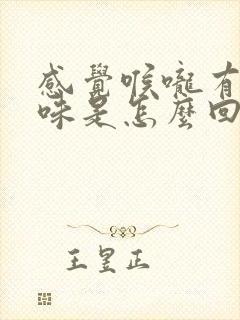 感覺喉嚨有
味是怎麼回
王昱正